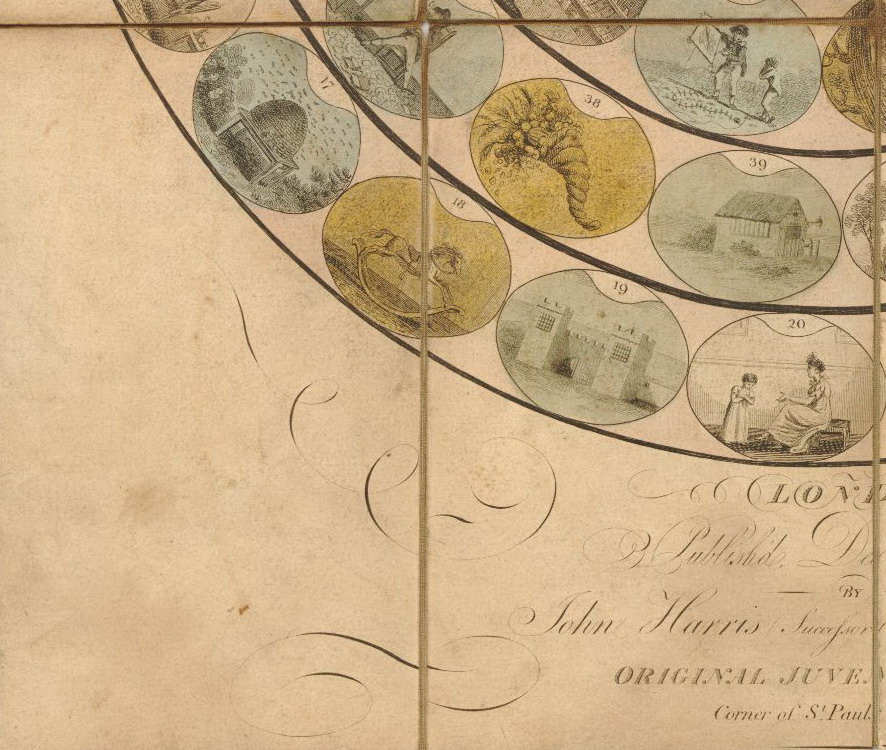 17
38
39
18
19
20
LON
Publish'd, De
BY
John Harris Successor
ORIGINAL JUVEN
Corner of St. Pauls